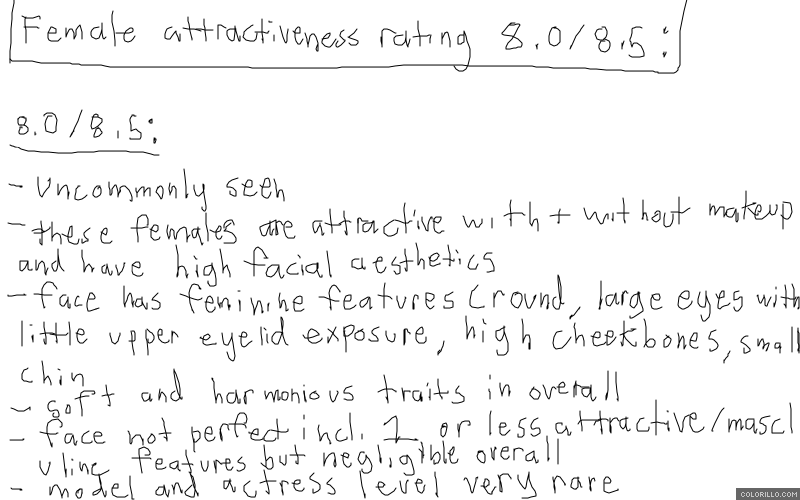 Female attractiveness rating 8.0/8.5:
8.0/8.5:
- Uncommonly seen
- these females are attractive with + without makeup
and have high facial aesthetics
- face has feminine features (round, large eyes with
little upper eyelid exposure, high cheekbones, small
chin
- soft and harmonious traits in overall
- face not perfect incl. 1 or less attractive/mascl
uline features but negligible overall
- model and actress level very rare
COLORILLO.COM